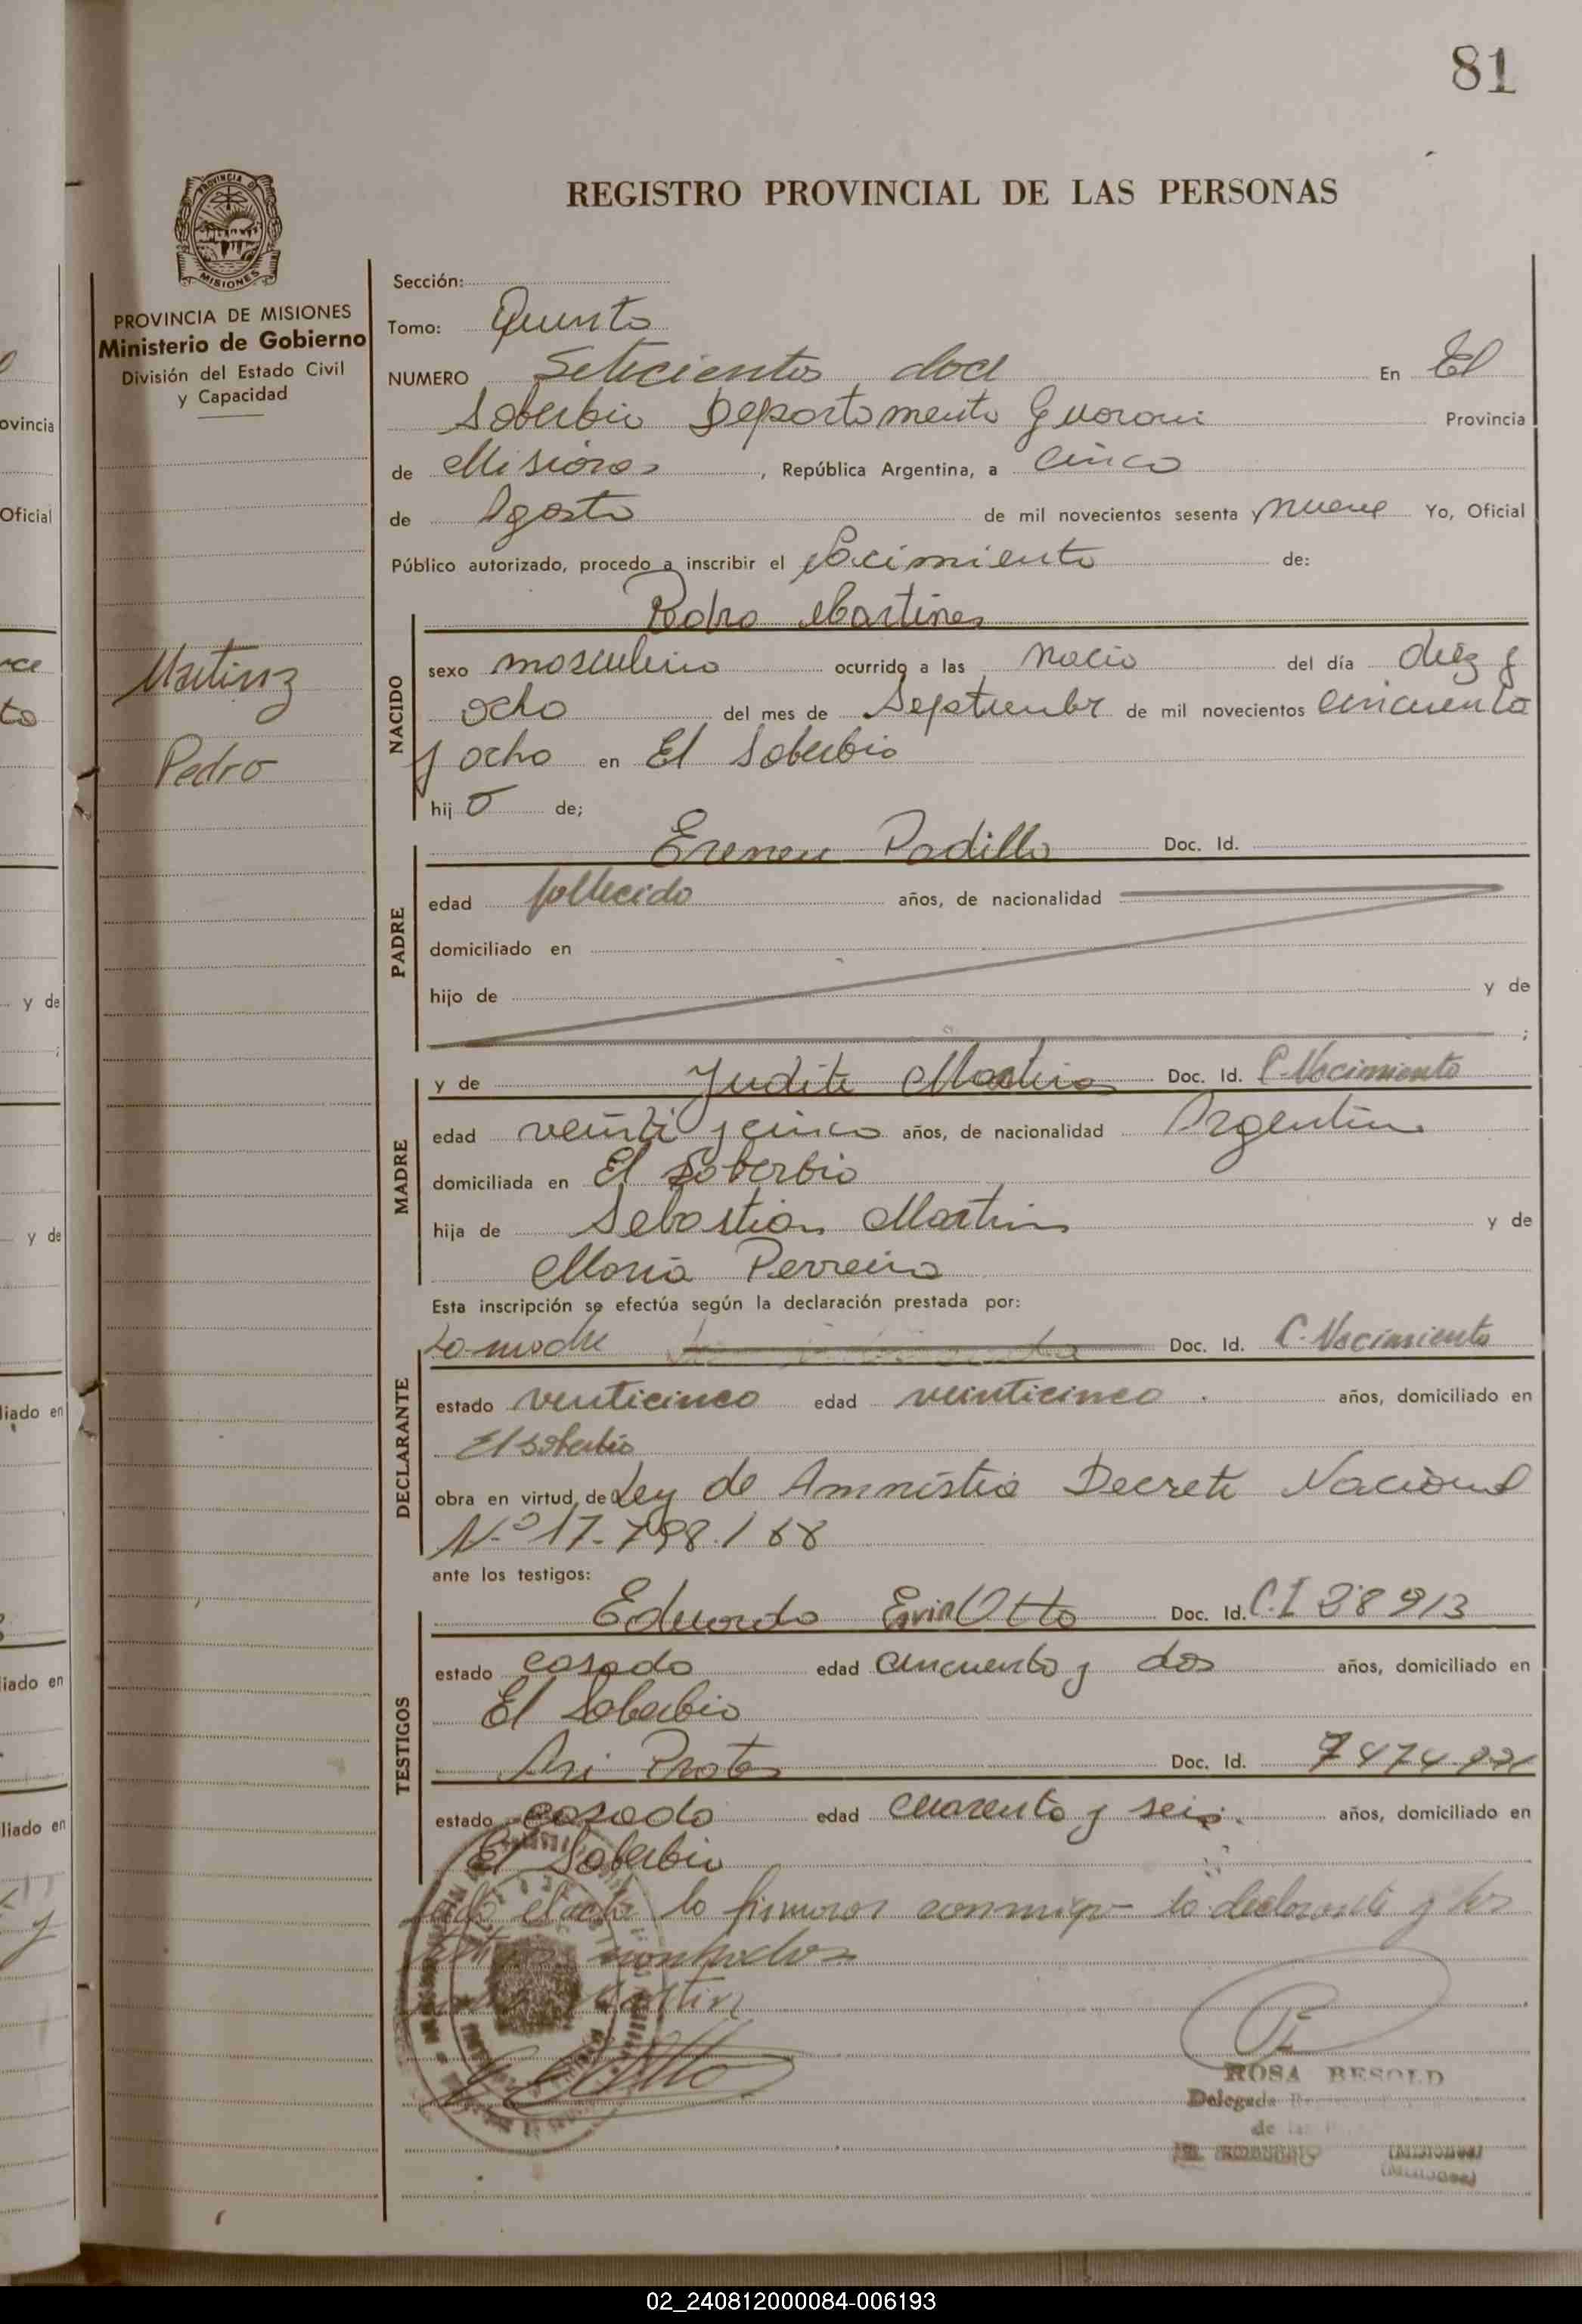 81
REGISTRO PROVINCIAL DE LAS PERSONAS
PROVINCIA DE MISIONES
Ministerio de Gobierno
División del Estado Civil
y Capacidad
Martinez
Pedro
Sección:
Tomo: Quinto
NUMERO Setecientos doce En El
Soberbio Departamento Guarani Provincia
de Misiones, República Argentina, a cinco
de Agosto de mil novecientos sesenta y nueve Yo, Oficial
Público autorizado, procedo a inscribir el Nacimiento de:
Pedro Martines
NACIDO
sexo masculino ocurrido a las nacio del día diez y
ocho del mes de Septiembre de mil novecientos cincuenta
y ocho en El Soberbio
hij o de;
Padilla Doc. Id.
PADRE
edad fallecido años, de nacionalidad
domiciliado en
hijo de y de
;
y de Judite Doc. Id. C. Nacimiento
MADRE
edad veinti y cinco años, de nacionalidad Argentina
domiciliada en El Soberbio
hija de Sebastian Martins y de
Maria Perreira
Esta inscripción se efectúa según la declaración prestada por:
La madre Doc. Id. C. Nacimiento
DECLARANTE
estado venticinco edad veinticinco años, domiciliado en
El Soberbio
obra en virtud de Ley de Amnistia Decreto Nacional
N.º 17.798/68
ante los testigos:
Eduardo Ervin Otto Doc. Id. C.I 38913
TESTIGOS
estado casado edad cincuenta y dos años, domiciliado en
El Soberbio
Ari Doc. Id. 7474
estado casado edad cuarenta y seis años, domiciliado en
El Soberbio
el acta lo firmaron conmigo la declarante y los
ROSA BESOLD
Delegada
de las
(MISIONES)
02_240812000084-006193